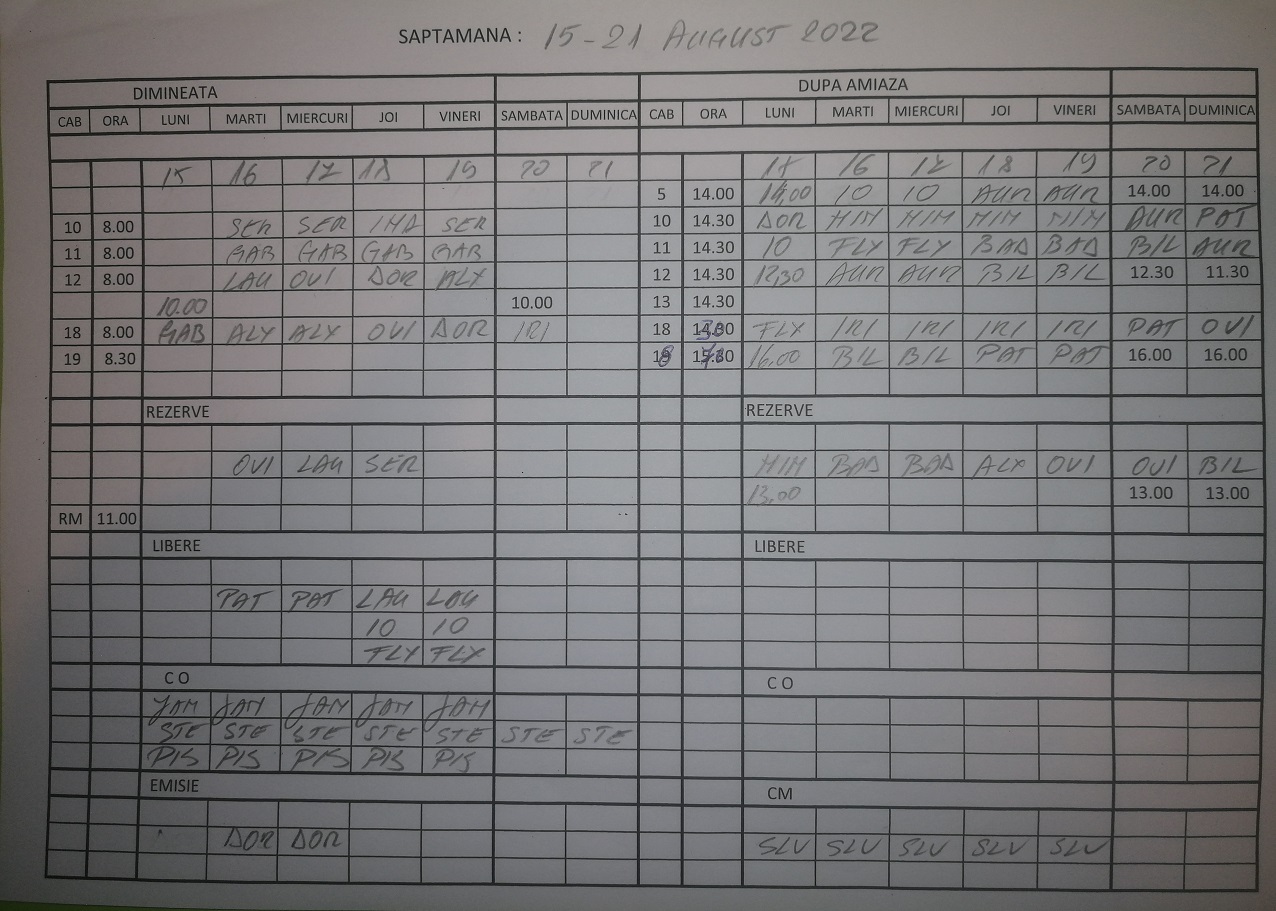 SAPTAMANA : 15-21 AUGUST 2022
DIMINEATA DUPA AMIAZA
CAB ORA LUNI MARTI MIERCURI JOI VINERI SAMBATA DUMINICA CAB ORA LUNI MARTI MIERCURI JOI VINERI SAMBATA DUMINICA
15 16 17 18 19 20 21 16 17 18 19 20 21
5 14.00 14,00 10 10 AUR AUR 14.00 14.00
10 8.00 SER SER SER 10 14.30 DOR MIM MIM MIM MIM AUR PAT
11 8.00 GAB GAB GAB GAB 11 14.30 10 FLX FLX BAD BAD BIL AUR
12 8.00 LAU OVI DOR ALX 12 14.30 12,30 AUR AUR BIL BIL 12.30 11.30
10.00 10.00 13 14.30
18 8.00 GAB ALX ALX OVI DOR IRI 18 FLX IRI IRI IRI IRI PAT OVI
19 8.30 16,00 BIL BIL PAT PAT 16.00 16.00
REZERVE REZERVE
OVI LAU SER MIM BAD BAD ALX OVI OVI BIL
13,00 13.00 13.00
RM 11.00
LIBERE LIBERE
PAT PAT LAU LAU
10 10
FLX FLX
C O C O
JAM JAM JAM JAM JAM
STE STE STE STE STE STE STE
PIS PIS PIS PIS PIS
EMISIE CM
DOR DOR SLV SLV SLV SLV SLV